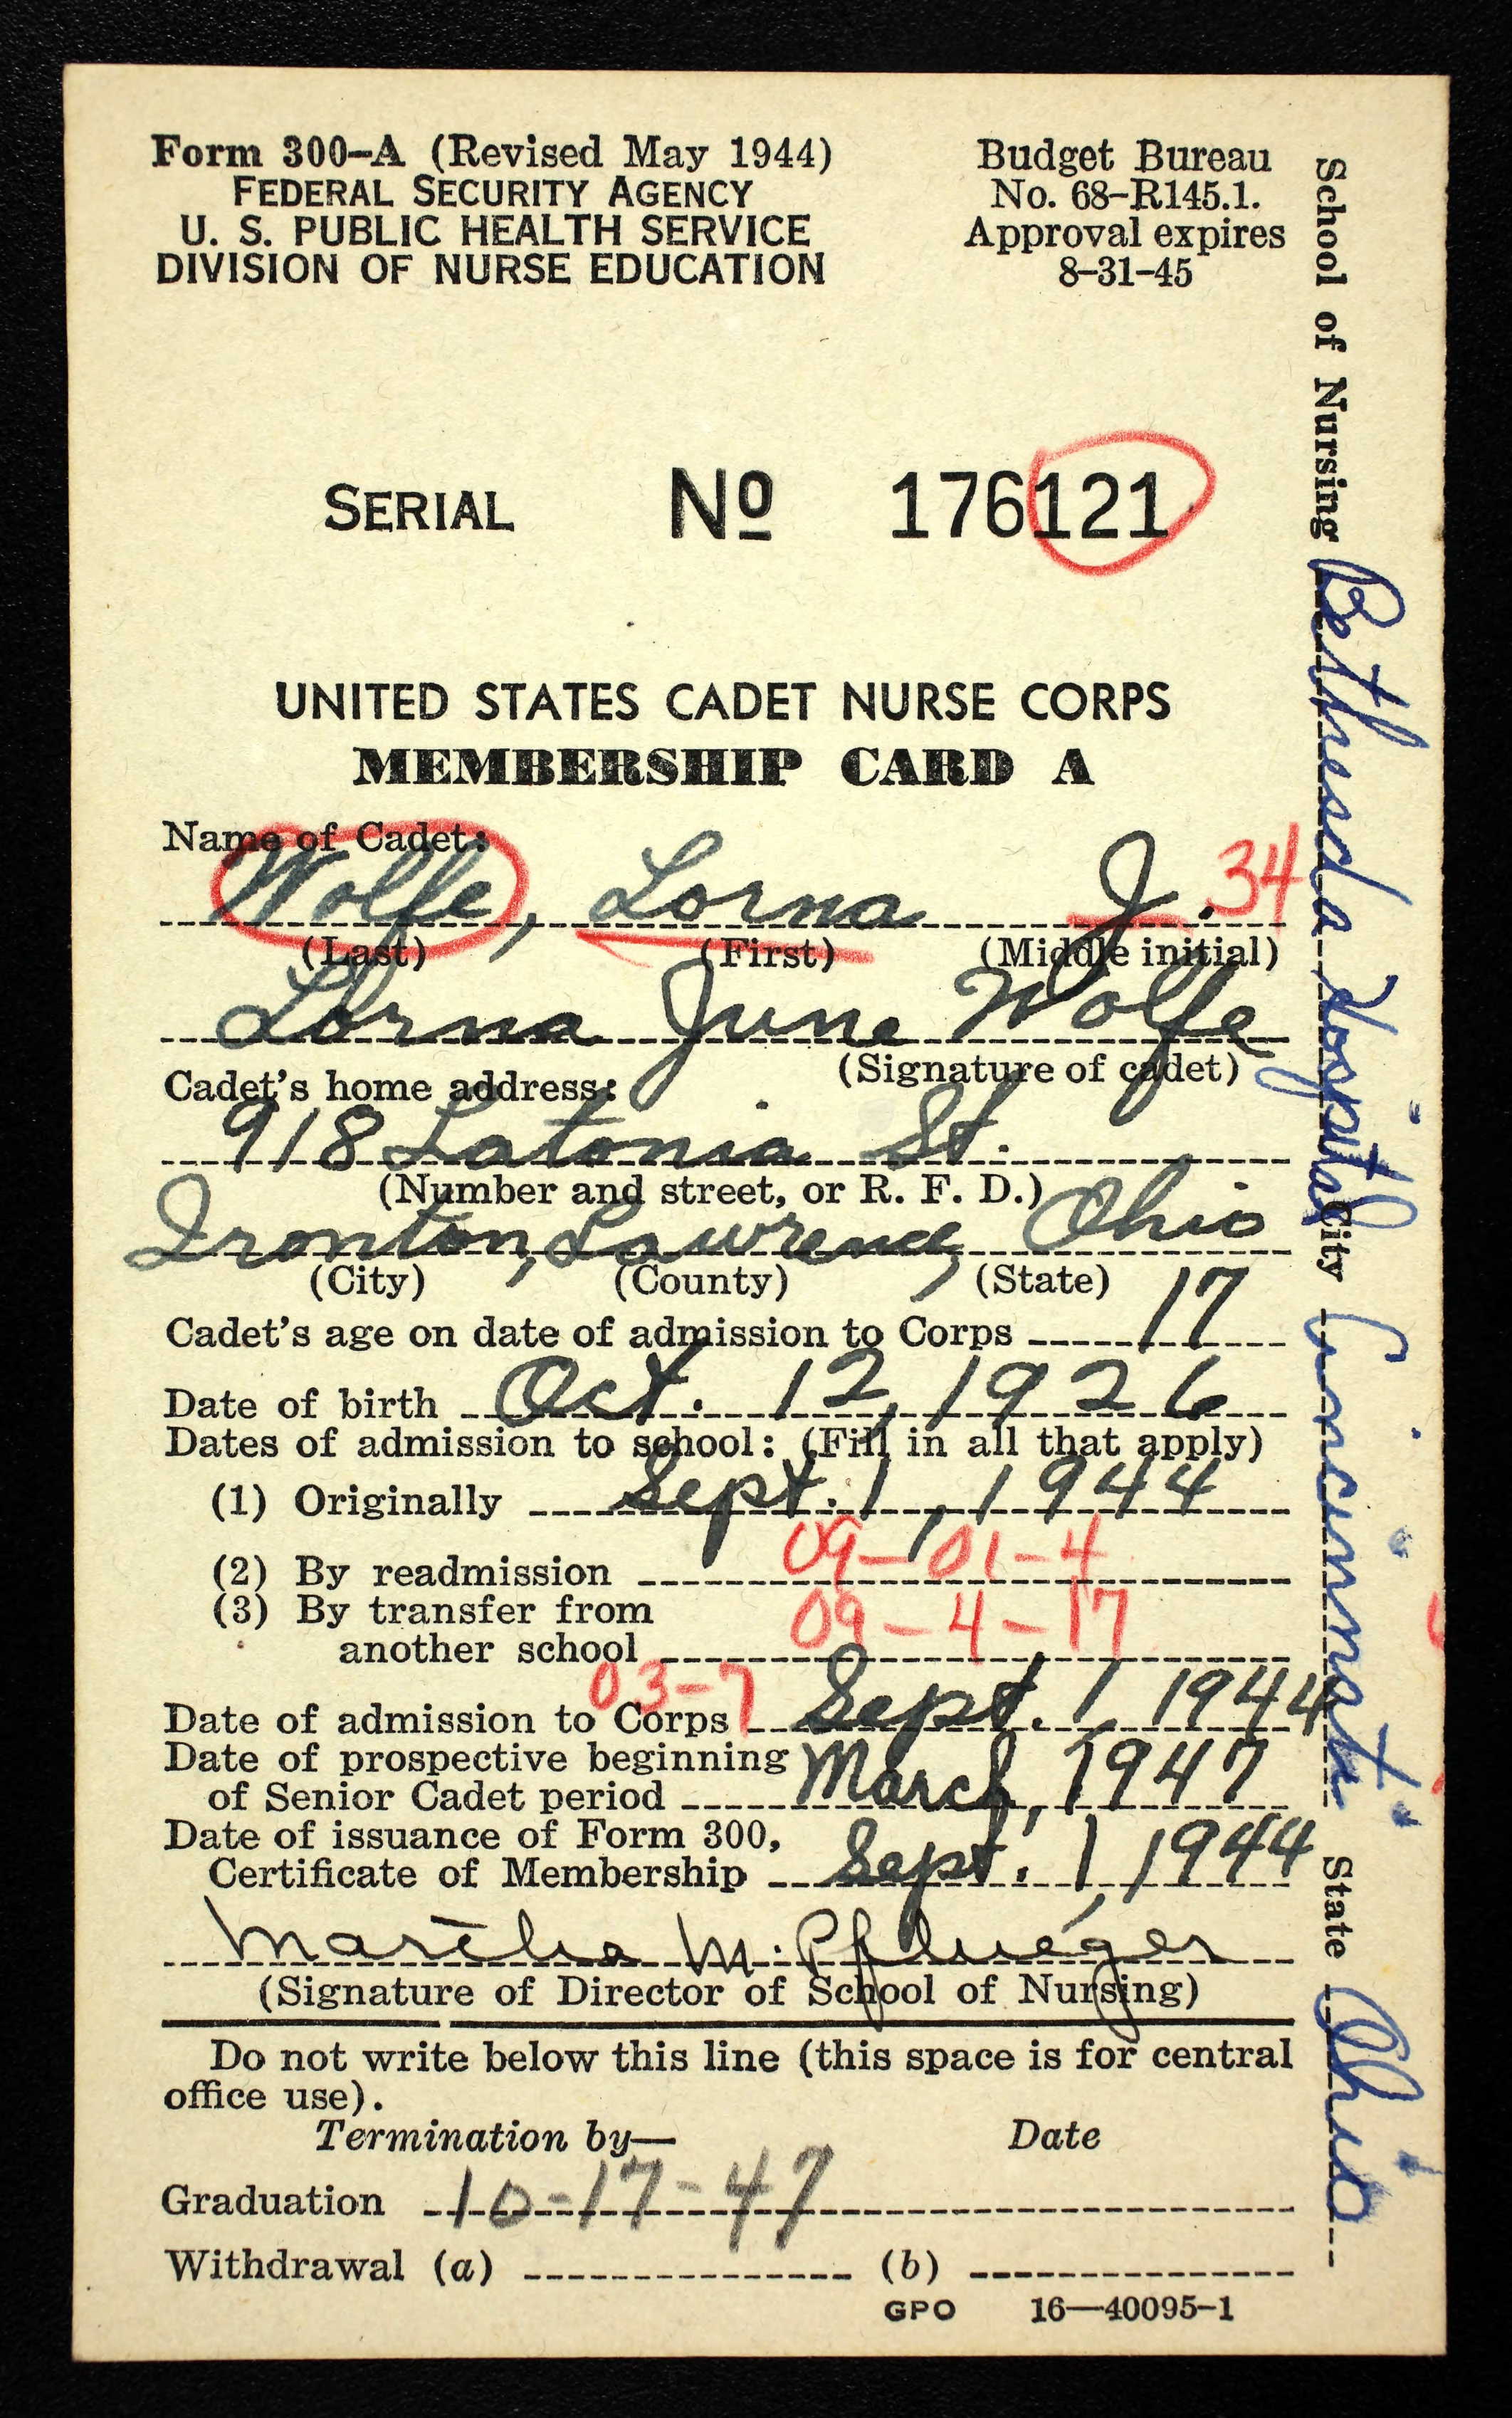 Form 300-A (Revised May 1944)
FEDERAL SECURITY AGENCY
U. S. PUBLIC HEALTH SERVICE
DIVISION OF NURSE EDUCATION
Budget Bureau
No. 68-R145.1.
Approval expires
8-31-45
SERIAL No 176121
UNITED STATES CADET NURSE CORPS
MEMBERSHIP CARD A
Name of Cadet:
Wolfe, Lorna J. 34
(Last) (First) (Middle initial)
Lorna June Wolfe
(Signature of cadet)
Cadet's home address:
918 Latonia St.
(Number and street, or R. F. D.)
Ironton, Lawrence, Ohio
(City) (County) (State)
Cadet's age on date of admission to Corps 17
Date of birth Oct. 12, 1926
Dates of admission to school: (Fill in all that apply)
(1) Originally Sept. 1, 1944
(2) By readmission 09-01-4
(3) By transfer from
another school 09-4-17
03-7
Date of admission to Corps Sept. 1, 1944
Date of prospective beginning
of Senior Cadet period March, 1947
Date of issuance of Form 300,
Certificate of Membership Sept. 1, 1944
Martha M. Pflueger
(Signature of Director of School of Nursing)
Do not write below this line (this space is for central
office use).
Termination by— Date
Graduation 10-17-47
Withdrawal (a) (b)
GPO 16—40095-1
School of Nursing Bethesda Hospital City Cincinnati State Ohio